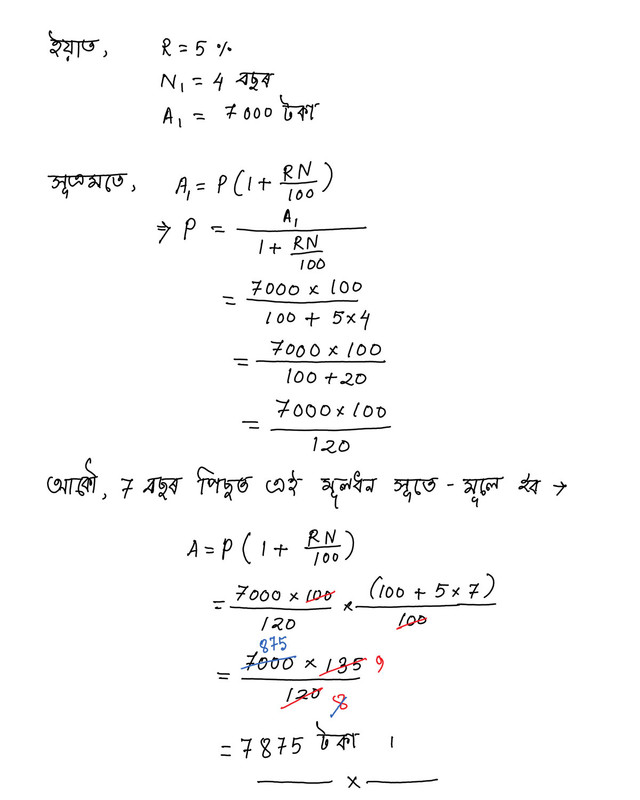 ইয়াত, R = 5 %
N₁ = 4 বছৰ
A₁ = 7000 টকা
সূত্ৰমতে, A₁ = P(1 + RN/100)
⇒ P = A₁/(1 + RN/100)
= (7000 × 100)/(100 + 5×4)
= (7000 × 100)/(100 + 20)
= (7000 × 100)/120
আকৌ, 7 বছৰ পিছত এই মূলধন সূতে - মূলে হব →
A = P(1 + RN/100)
= (7000 × 100)/120 × (100 + 5 × 7)/100
875
= (7000 × 135)/120 9
8
= 7875 টকা ।
——— × ———